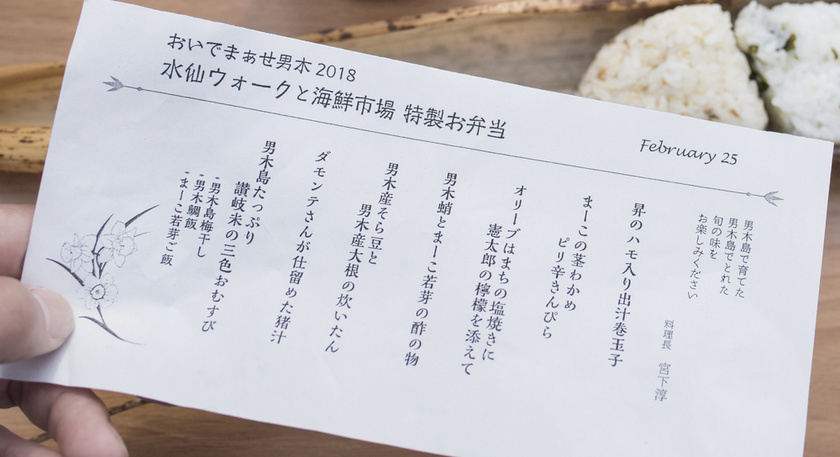 おいでまぁせ男木 2018
水仙ウォークと海鮮市場 特製お弁当
February 25
男木島で育てた
男木島でとれた
旬の味を
お楽しみください
料理長 宮下淳
昇のハモ入り出汁巻玉子
まーこの茎わかめ
ピリ辛きんぴら
オリーブはまちの塩焼きに
憲太郎の檸檬を添えて
男木蛸とまーこ若芽の酢の物
男木産そら豆と
男木産大根の炊いたん
ダモンテさんが仕留めた猪汁
男木島たっぷり
讃岐米の三色おむすび
- 男木島梅干し
- 男木鯛飯
- まーこ若芽ご飯